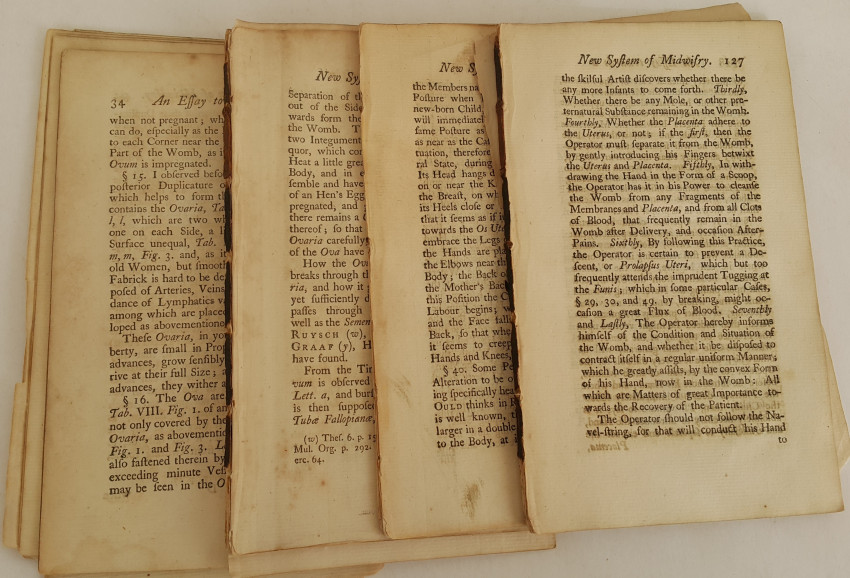 34 An Eſſay to
when not pregnant; wh
can do, eſpecially as the
to each Corner near the
Part of the Womb, as i
Ovum is impregnated.
§ 15. I obſerved befo
poſterior Duplicature o
which helps to form t
contains the Ovaria, Ta
l, l, which are two wh
one on each Side, a l
Surface unequal, Tab.
m, m, Fig. 3. and, as i
old Women, but ſmooth
Fabrick is hard to be de
poſed of Arteries, Veins
dance of Lymphatics v
among which are place
loped as abovementione
Theſe Ovaria, in yo
berty, are ſmall in Prop
advances, grow ſenſibly
rive at their full Size; a
advances, they wither a
§ 16. The Ova are
Tab. VIII. Fig. 1. of an
not only covered by the
Ovaria, as abovementio
Fig. 1. and Fig. 3. L
alſo faſtened therein by
exceeding minute Veſſ
may be ſeen in the O
New Sy
Separation of t
out of the Side
wards form the
the Womb. T
two Integument
quor, which con
Heat a little grea
Body, and in e
ſemble and have
of an Hen's Egg
pregnated, and
there remains a
thereof; ſo that
Ovaria carefully
of the Ova have
How the Ova
breaks through th
ria, and how it
yet ſufficiently d
paſſes through
well as the Semen
RUYSCH (w),
GRAAF (y), H
have found.
From the Tim
vum is obſerved
Lett. a, and burſ
is then ſuppoſe
Tubæ Fallopianæ,
(w) Theſ. 6. p. 15
Mul. Org. p. 292.
erc. 64.
New S
the Members na
Poſture when
new-born Child,
will immediatel
ſame Poſture as
as near as the Cat
tuation, therefore
ral State, during
Its Head hangs d
on or near the K
the Breaſt, on wh
its Heels cloſe or
that it ſeems as if i
towards the Os Ute
embrace the Legs
the Hands are pla
the Elbows near th
Body; the Back o
the Mother's Back
this Poſition the C
Labour begins; w
and the Face fall
Back, ſo that whe
it ſeems to creep
Hands and Knees,
§ 40. Some Pe
Alteration to be o
ing ſpecifically hea
OULD thinks in P
is well known, t
larger in a double
to the Body, at i
New Syſtem of Midwifry. 127
the ſkilful Artiſt diſcovers whether there be
any more Infants to come forth. Thirdly,
Whether there be any Mole, or other pre-
ternatural Subſtance remaining in the Womb.
Fourthly, Whether the Placenta adhere to
the Uterus, or not; if the firſt, then the
Operator muſt ſeparate it from the Womb,
by gently introducing his Fingers betwixt
the Uterus and Placenta. Fifthly, In with-
drawing the Hand in the Form of a Scoop,
the Operator has it in his Power to cleanſe
the Womb from any Fragments of the
Membranes and Placenta, and from all Clots
of Blood, that frequently remain in the
Womb after Delivery, and occaſion After-
Pains. Sixthly, By following this Practice,
the Operator is certain to prevent a De-
ſcent, or Prolapſus Uteri, which but too
frequently attends the imprudent Tugging at
the Funis; which in ſome particular Caſes,
§ 29, 30, and 49, by breaking, might oc-
caſion a great Flux of Blood. Seventhly
and Laſtly, The Operator hereby informs
himſelf of the Condition and Situation of
the Womb, and whether it be diſpoſed to
contract itſelf in a regular uniform Manner;
which he greatly aſſiſts, by the convex Form
of his Hand, now in the Womb: All
which are Matters of great Importance to-
wards the Recovery of the Patient.
The Operator ſhould not follow the Na-
vel-ſtring, for that will conduct his Hand
to